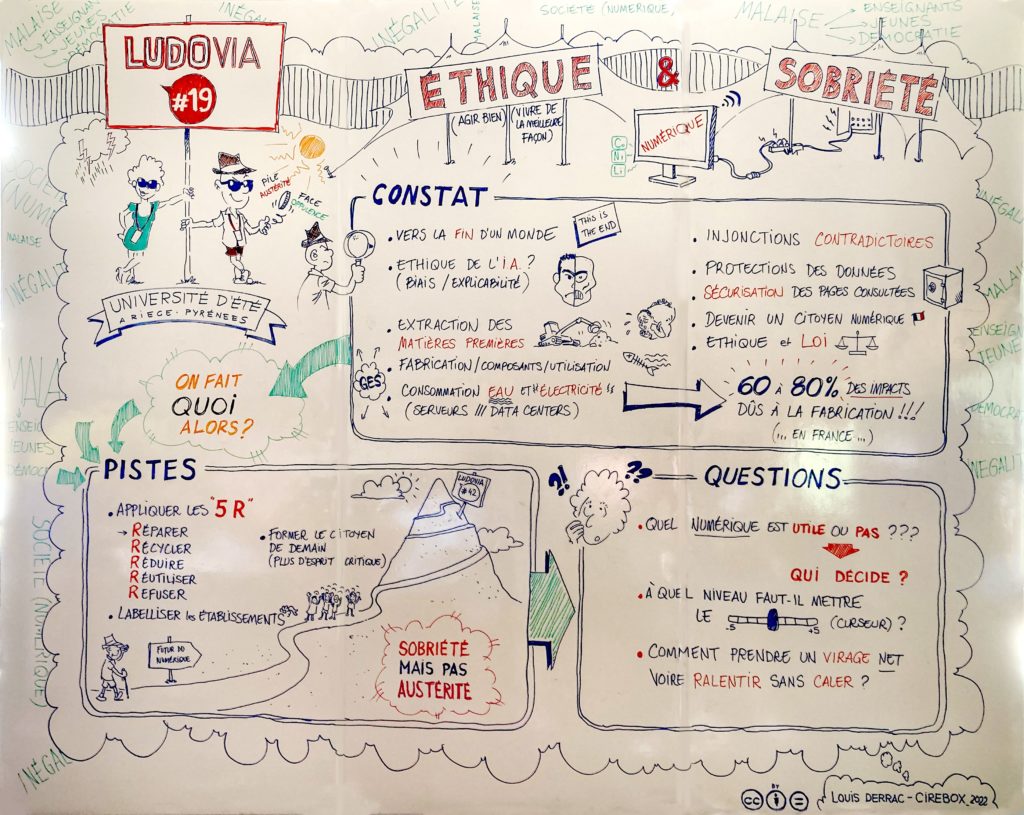 MALAISE
ENSEIGNANTS
JEUNES
DÉMOCRATIE
INÉGALITÉ
MALAISE
SOCIÉTÉ (NUMÉRIQUE)
MALAISE
ENSEIGNANTS
JEUNES
DÉMOCRATIE
LUDOVIA
#19
ÉTHIQUE
(AGIR BIEN)
(VIVRE DE
LA MEILLEURE
FAÇON)
&
SOBRIÉTÉ
NUMÉRIQUE
Co
Ni
Li
PILE
AUSTÉRITÉ
FACE
OPULENCE
UNIVERSITÉ D'ÉTÉ
ARIEGE-PYRÉNÉES
CONSTAT
• VERS LA FIN D'UN MONDE
THIS IS
THE END
• ETHIQUE DE L'I.A.?
(BIAIS / EXPLICABILITÉ)
• EXTRACTION DES
MATIÈRES PREMIÈRES
• FABRICATION/COMPOSANTS/UTILISATION
• CONSOMMATION EAU ET "ÉLECTRICITÉ"
(SERVEURS /// DATA CENTERS)
GES
• INJONCTIONS CONTRADICTOIRES
• PROTECTIONS DES DONNÉES
• SÉCURISATION DES PAGES CONSULTÉES
• DEVENIR UN CITOYEN NUMÉRIQUE
• ETHIQUE et LOI
60 À 80% DES IMPACTS
DÛS À LA FABRICATION!!!
(... EN FRANCE...)
ON FAIT
QUOI
ALORS?
PISTES
• APPLIQUER LES "5R"
→ RÉPARER
RÉCYCLER
RÉDUIRE
RÉUTILISER
REFUSER
• LABELLISER les ÉTABLISSEMENTS
• FORMER LE CITOYEN
DE DEMAIN
(PLUS D'ESPRIT CRITIQUE)
LUDOVIA
#42
FUTUR DU
NUMÉRIQUE
SOBRIÉTÉ
MAIS PAS
AUSTÉRITÉ
?!
??
QUESTIONS
• QUEL NUMÉRIQUE EST UTILE OU PAS ???
QUI DÉCIDE ?
• À QUEL NIVEAU FAUT-IL METTRE
LE
-5
+5
(CURSEUR) ?
• COMMENT PRENDRE UN VIRAGE NET
VOIRE RALENTIR SANS CALER ?
MALAISE
INÉGALITÉ
SOCIÉTÉ (NUMÉRIQUE)
INÉGAL
INÉGALITÉ
CC BY =
LOUIS DERRAC - CIREBOX_2022